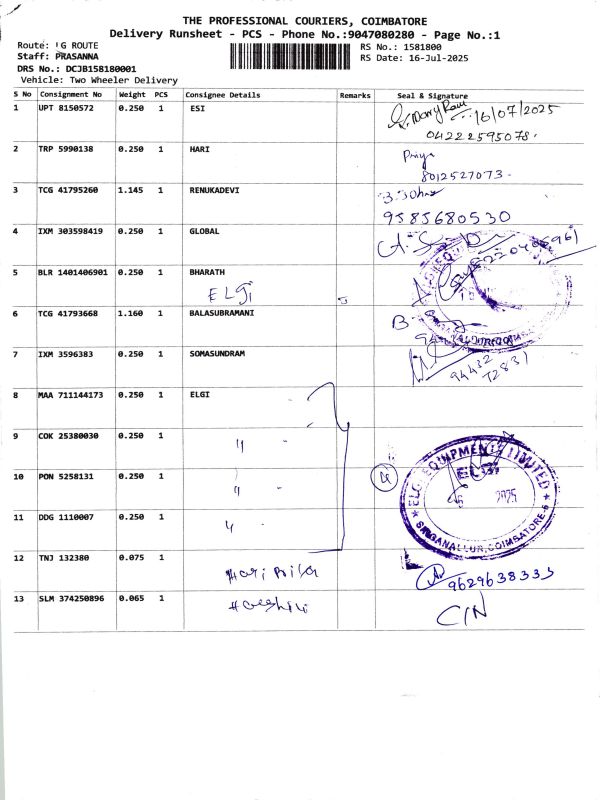 THE PROFESSIONAL COURIERS, COIMBATORE
Delivery Runsheet - PCS - Phone No.:9047080280 - Page No.:1
Route: G ROUTE
Staff: PRASANNA
DRS No.: DCJB158180001
Vehicle: Two Wheeler Delivery
RS No.: 1581800
RS Date: 16-Jul-2025
S No Consignment No Weight PCS Consignee Details Remarks Seal & Signature
1 UPT 8150572 0.250 1 ESI 16/07/2025
04222595078.
2 TRP 5990138 0.250 1 HARI Priya
8012527073.
3 TCG 41795260 1.145 1 RENUKADEVI
9585680530
4 IXM 303598419 0.250 1 GLOBAL
5 BLR 1401406901 0.250 1 BHARATH
ELGi
6 TCG 41793668 1.160 1 BALASUBRAMANI
7 IXM 3596383 0.250 1 SOMASUNDRAM
94432
72831
8 MAA 711144173 0.250 1 ELGI
9 COK 25380030 0.250 1 "
10 PON 5258131 0.250 1 "
11 DDG 1110007 0.250 1 "
ELGI EQUIPMENTS LIMITED
SINGANALLUR, COIMBATORE-5
2025
12 TNJ 132380 0.075 1 Hari Priya
9629638333
13 SLM 374250896 0.065 1